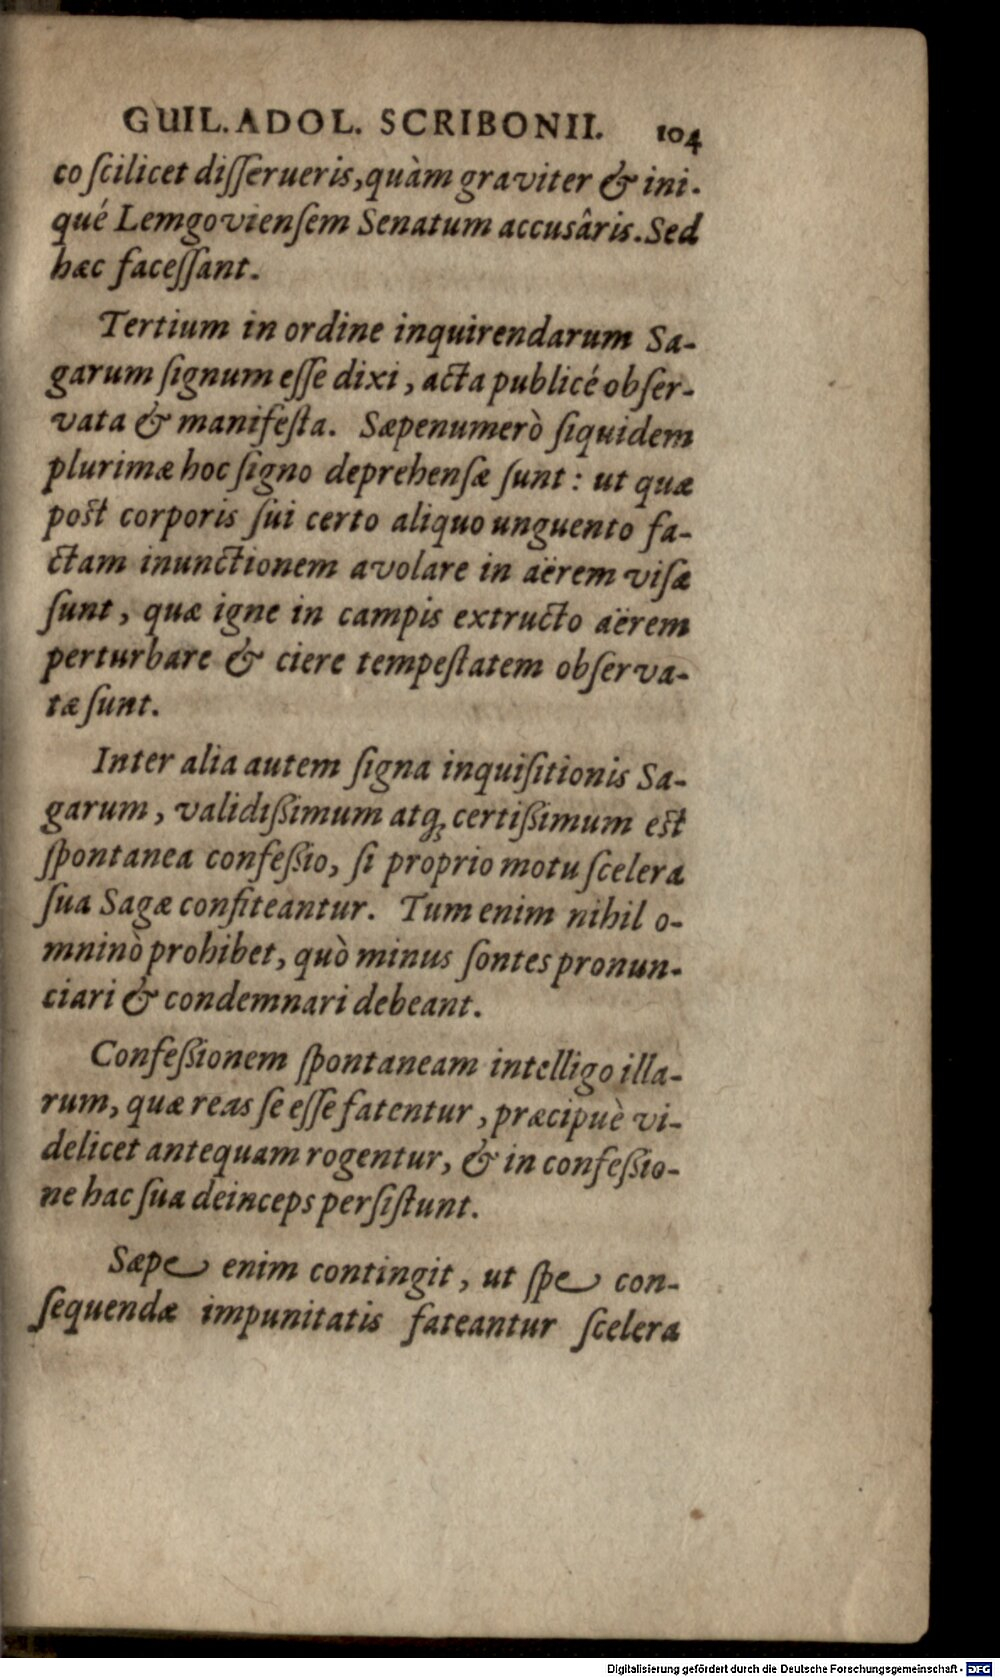 GUIL. ADOL. SCRIBONII. 104
co ſcilicet diſſerueris, quàm graviter & ini-
qué Lemgovienſem Senatum accusâris. Sed
hæc faceſſant.
Tertium in ordine inquirendarum Sa-
garum ſignum eſſe dixi, acta publicé obſer-
vata & manifeſta. Sæpenumerò ſiquidem
plurimæ hoc ſigno deprehenſæ ſunt: ut quæ
post corporis ſui certo aliquo unguento fa-
ctam inunctionem avolare in aërem viſæ
ſunt, quæ igne in campis extructo aërem
perturbare & ciere tempeſtatem obſerva-
tæ ſunt.
Inter alia autem ſigna inquiſitionis Sa-
garum, validißimum atq; certißimum est
ſpontanea confeßio, ſi proprio motu ſcelera
ſua Sagæ confiteantur. Tum enim nihil o-
mninò prohibet, quò minus ſontes pronun-
ciari & condemnari debeant.
Confeßionem ſpontaneam intelligo illa-
rum, quæ reas ſe eſſe fatentur, præcipuè vi-
delicet antequam rogentur, & in confeßio-
ne hac ſua deinceps perſiſtunt.
Sæpe enim contingit, ut ſpe con-
ſequendæ impunitatis fateantur ſcelera
Digitalisierung gefördert durch die Deutsche Forschungsgemeinschaft - DFG